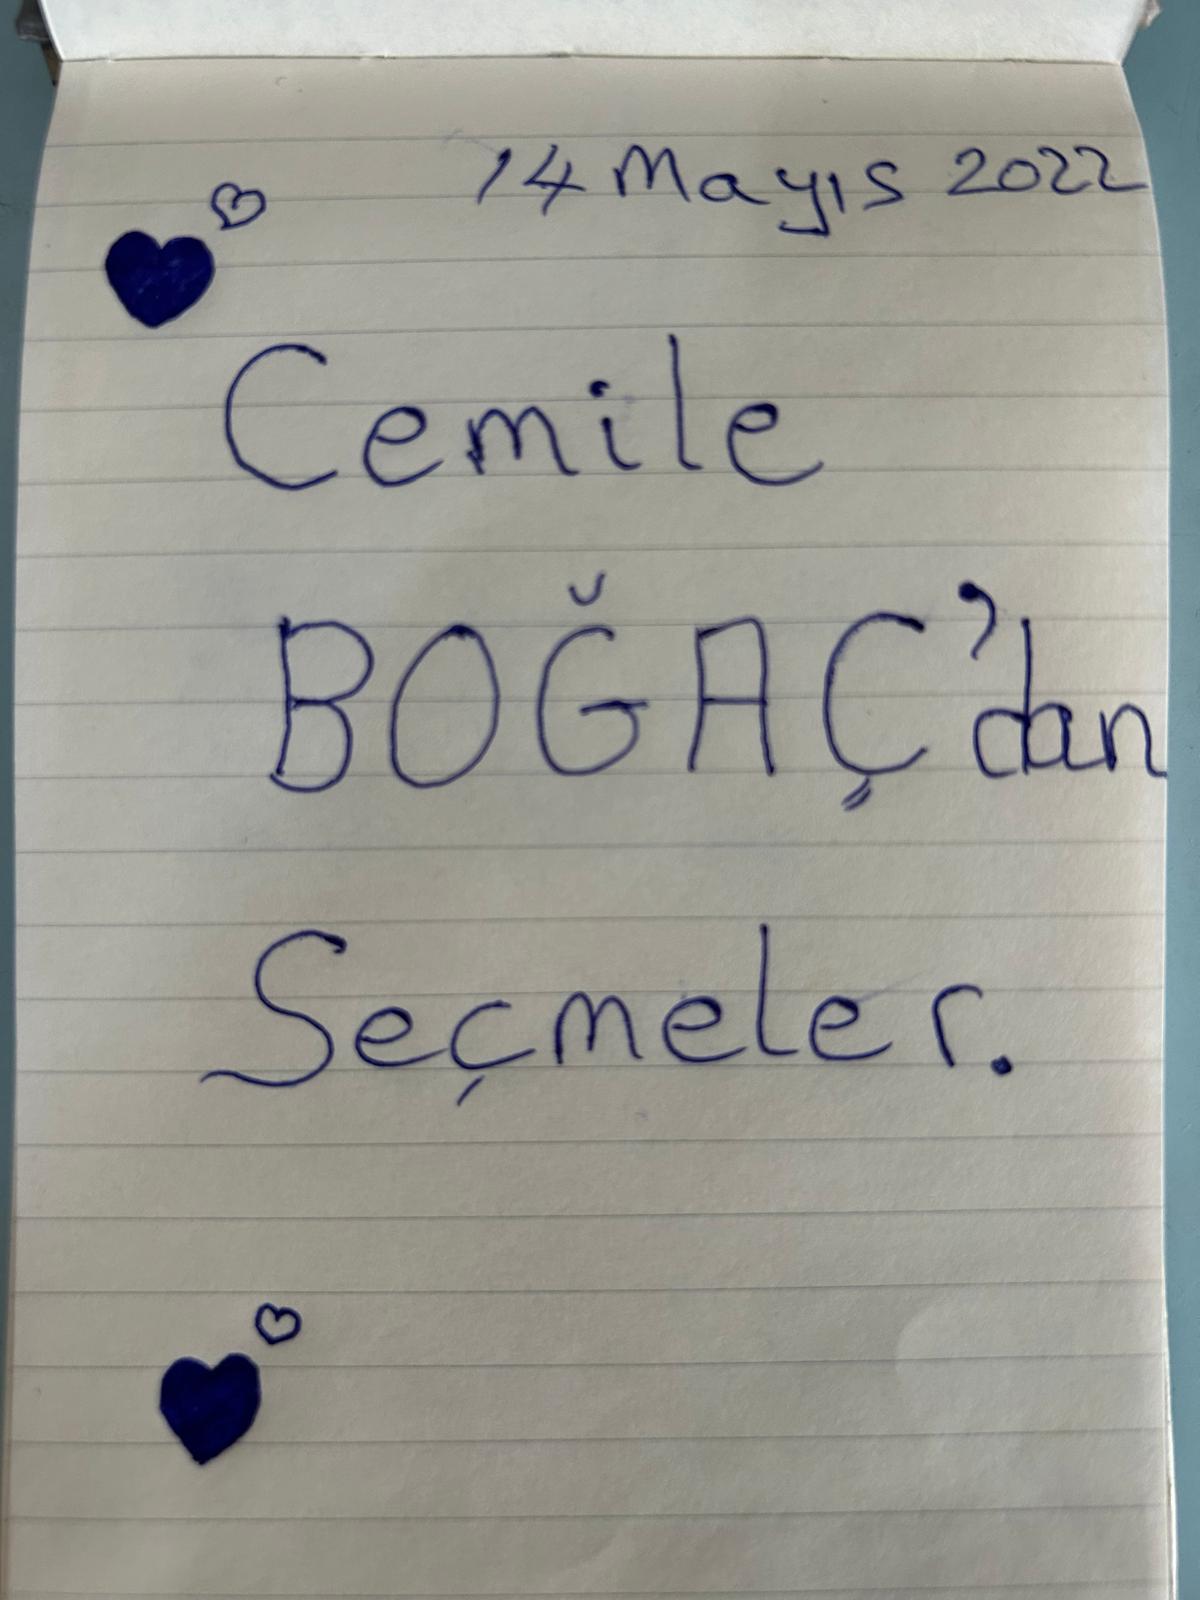 14 Mayıs 2022
Cemile
BOĞAÇ'dan
Seçmeler.